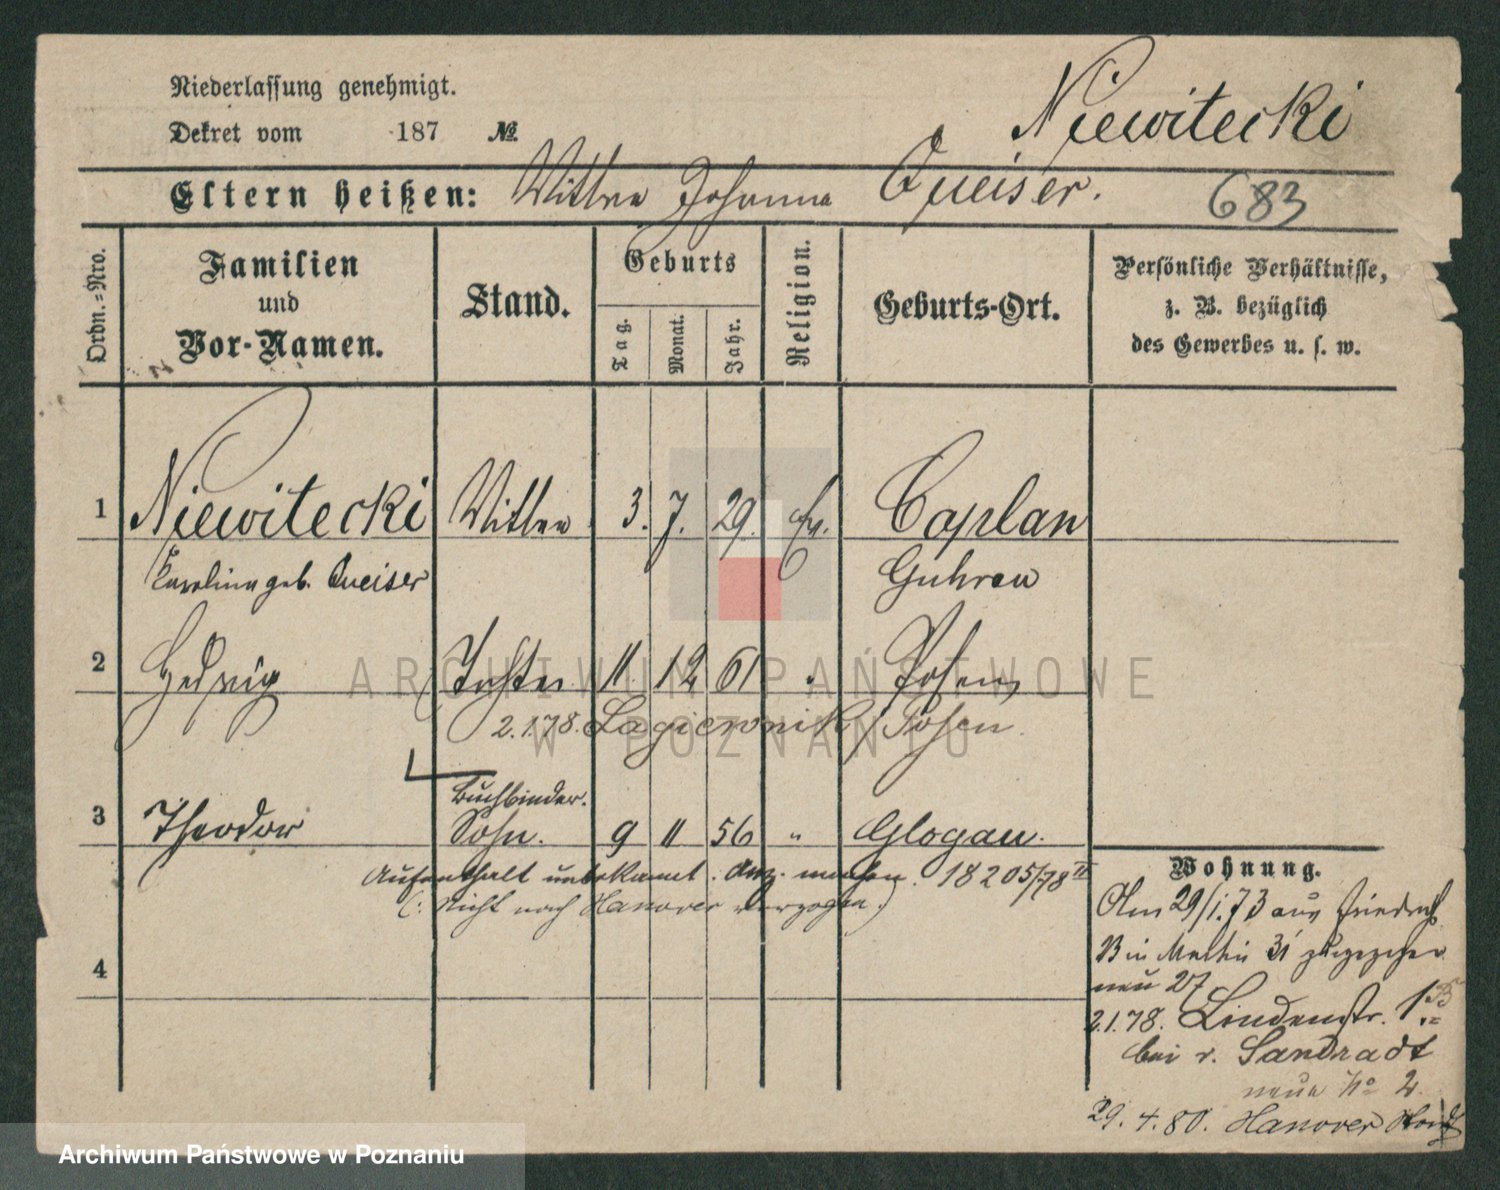 Niederlassung genehmigt.
Dekret vom 187 №
Niewitecki
Eltern heißen: Wittwe Johanna Queiser.
683
Ordn.=Nro.
Familien
und
Vor-Namen.
Stand.
Geburts
Tag.
Monat.
Jahr.
Religion.
Geburts-Ort.
Persönliche Verhältnisse,
z. B. bezüglich
des Gewerbes u. s. w.
1 Niewitecki Wittwe 3. 7. 29. Ev. Caplan
Karolina geb. Queiser Guhrau
2 Hedwig Tochter 11 12 61 " Posen
2.1.78. Lagiewnik/Posen.
Buchbinder.
3 Theodor Sohn. 9 11 56 " Glogau.
Aufenthalt unbekannt. Anz. machen. 18205/78 II
(: Nicht nach Hanover verzogen.)
4
Wohnung.
Am 29/1.73 aus Friedrich
31 zugezogen
neu 27
2.1.78. Lindenstr. 1
bei v. Sandradt
neue No 2.
29.4.80. Hanover
Archiwum Państwowe w Poznaniu
ARCHIWUM PAŃSTWOWE
W POZNANIU